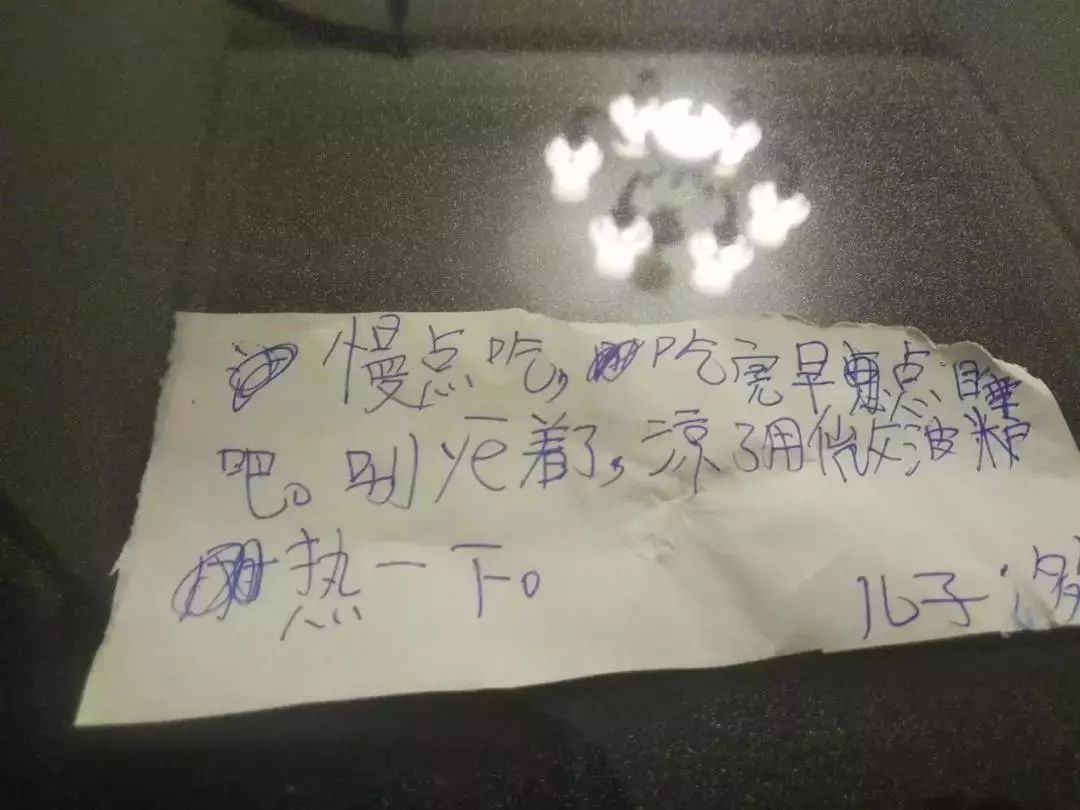 慢点吃,吃完早点睡
吧。别yē着了,凉了用微波炉
热一下。
儿子: